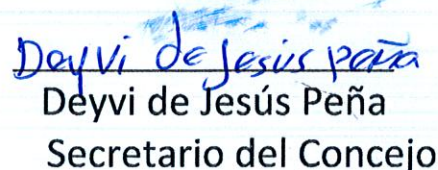 Deyvi de Jesús peña
Deyvi de Jesús Peña
Secretario del Concejo